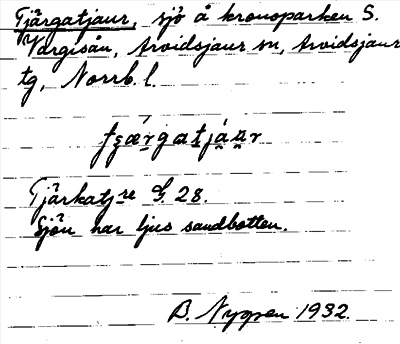 Tjärgatjaur, sjö å kronoparken S.
Vargisån, Arvidsjaur sn, Arvidsjaur
tg, Norrb. l.
Tjärkatj-re G. 28.
Sjön har ljus sandbotten.
B. Nygren 1932.